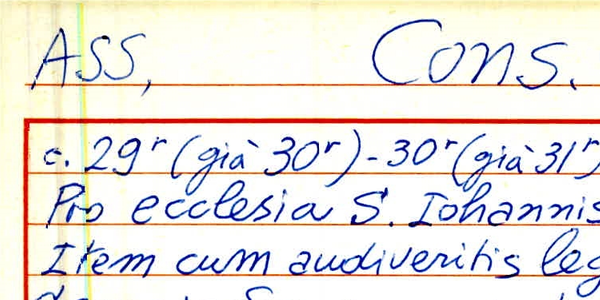 ASS, Cons.
c. 29r (già 30r) - 30r (già 31r)
Pro ecclesia S. Iohannis
Item cum audiveritis leg